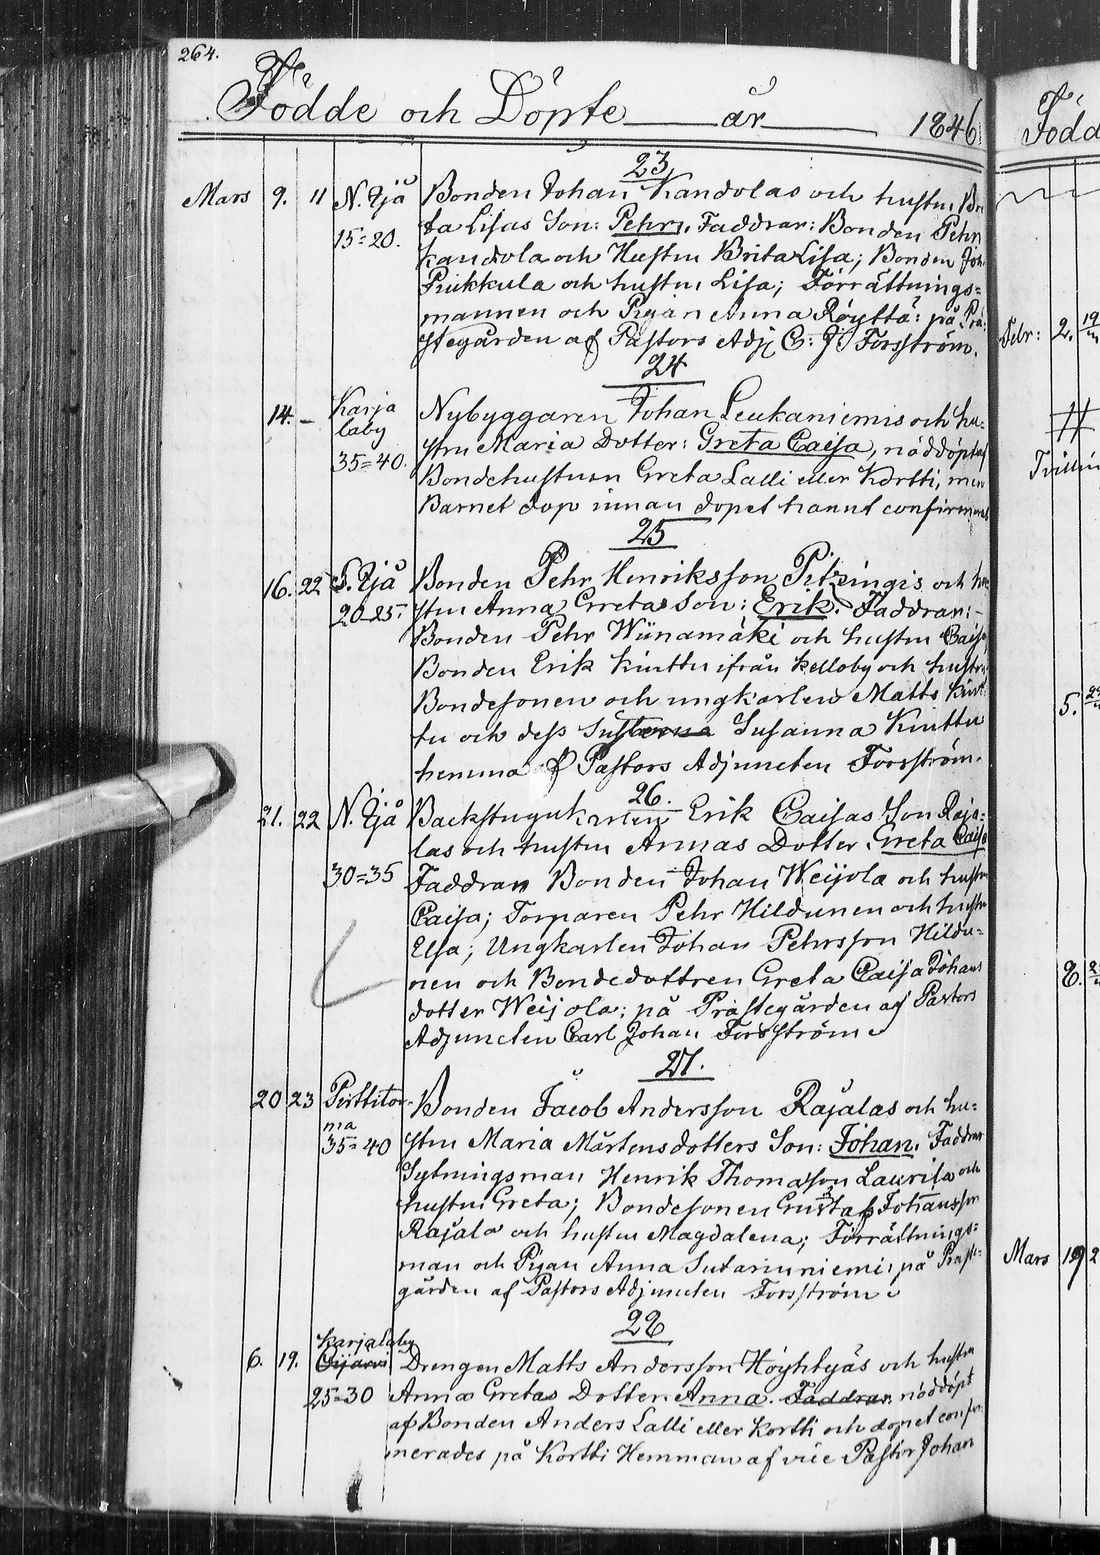 264.
Födde och Döpte år 1846.
23
Mars 9. 11 N. Ijå Bonden Johan Kandolas och hustru Bri
15=20. ta Lisas Son: Pehr, Faddrar: Bonden Pehr
Kandola och Hustru Brita Lisa; Bonden Joh.
Pukkula och hustru Lisa; Förrättnings=
mannen och Pigan Anna Röyttä: på Prä
stegården af Pastors Adj. C. J. Forsström.
24
14. – Karja Nybyggaren Johan Leukaniemis och hu=
laby stru Maria Dotter: Greta Caisa, nöddöpt af
35=40. Bondehustrun Greta Lalli eller Kortti, men
Barnet dog innan dopet hannt confirmeras
25
16. 22 S. Ijå Bonden Pehr Henriksson Pitzingis och hu
20=25. stru Anna Gretas Son: Erik. Faddrar:
Bonden Pehr Wiinamäki och hustru Caisa
Bonden Erik Kinttu ifrån Kelloby och hustru
Bondesonen och ungkarlen Matts Kint
tu och dess Susanna Kinttu
hemma af Pastors Adjuncten Forsström.
26.
21. 22 N. Ijå Backstugukarlen Erik Caisas Son Raja=
las och hustru Annas Dotter: Greta Caisa
30=35 Faddrar Bonden Johan Weijola och hustru
Caisa; Torparen Pehr Hildunen och hustru
Elsa; Ungkarlen Johan Pehrsson Hildu=
nen och Bondedottren Greta Caisa Johans
dotter Weijola; på Prästegården af Pastors
Adjuncten Carl Johan Forsström.
27.
20 23 Perttitör= Bonden Jacob Andersson Rajalas och hu=
mä
35=40 stru Maria Mårtensdotters Son: Johan. Faddrar
Sytningsman Henrik Thomasson Laurila och
hustru Greta; Bondesonen Gustaf Johansson
Rajala och hustru Magdalena; Förrättnings=
man och Pigan Anna Sutariniemi; på Prast=
gården af Pastors Adjuncten Forsström.
28
Karjalaby
6. 19. Oijärvi Drengen Matts Andersson Höyhtyäs och hustru
25=30 Anna Gretas Dotter: Anna. Faddrar nöddöpt
af Bonden Anders Lalli eller Kortti och dopet confir
merades på Kortti Hemman af vice Pastor Johan
Född
Febr: 2. 19
Tvilling
5.
8.
Mars 19 2